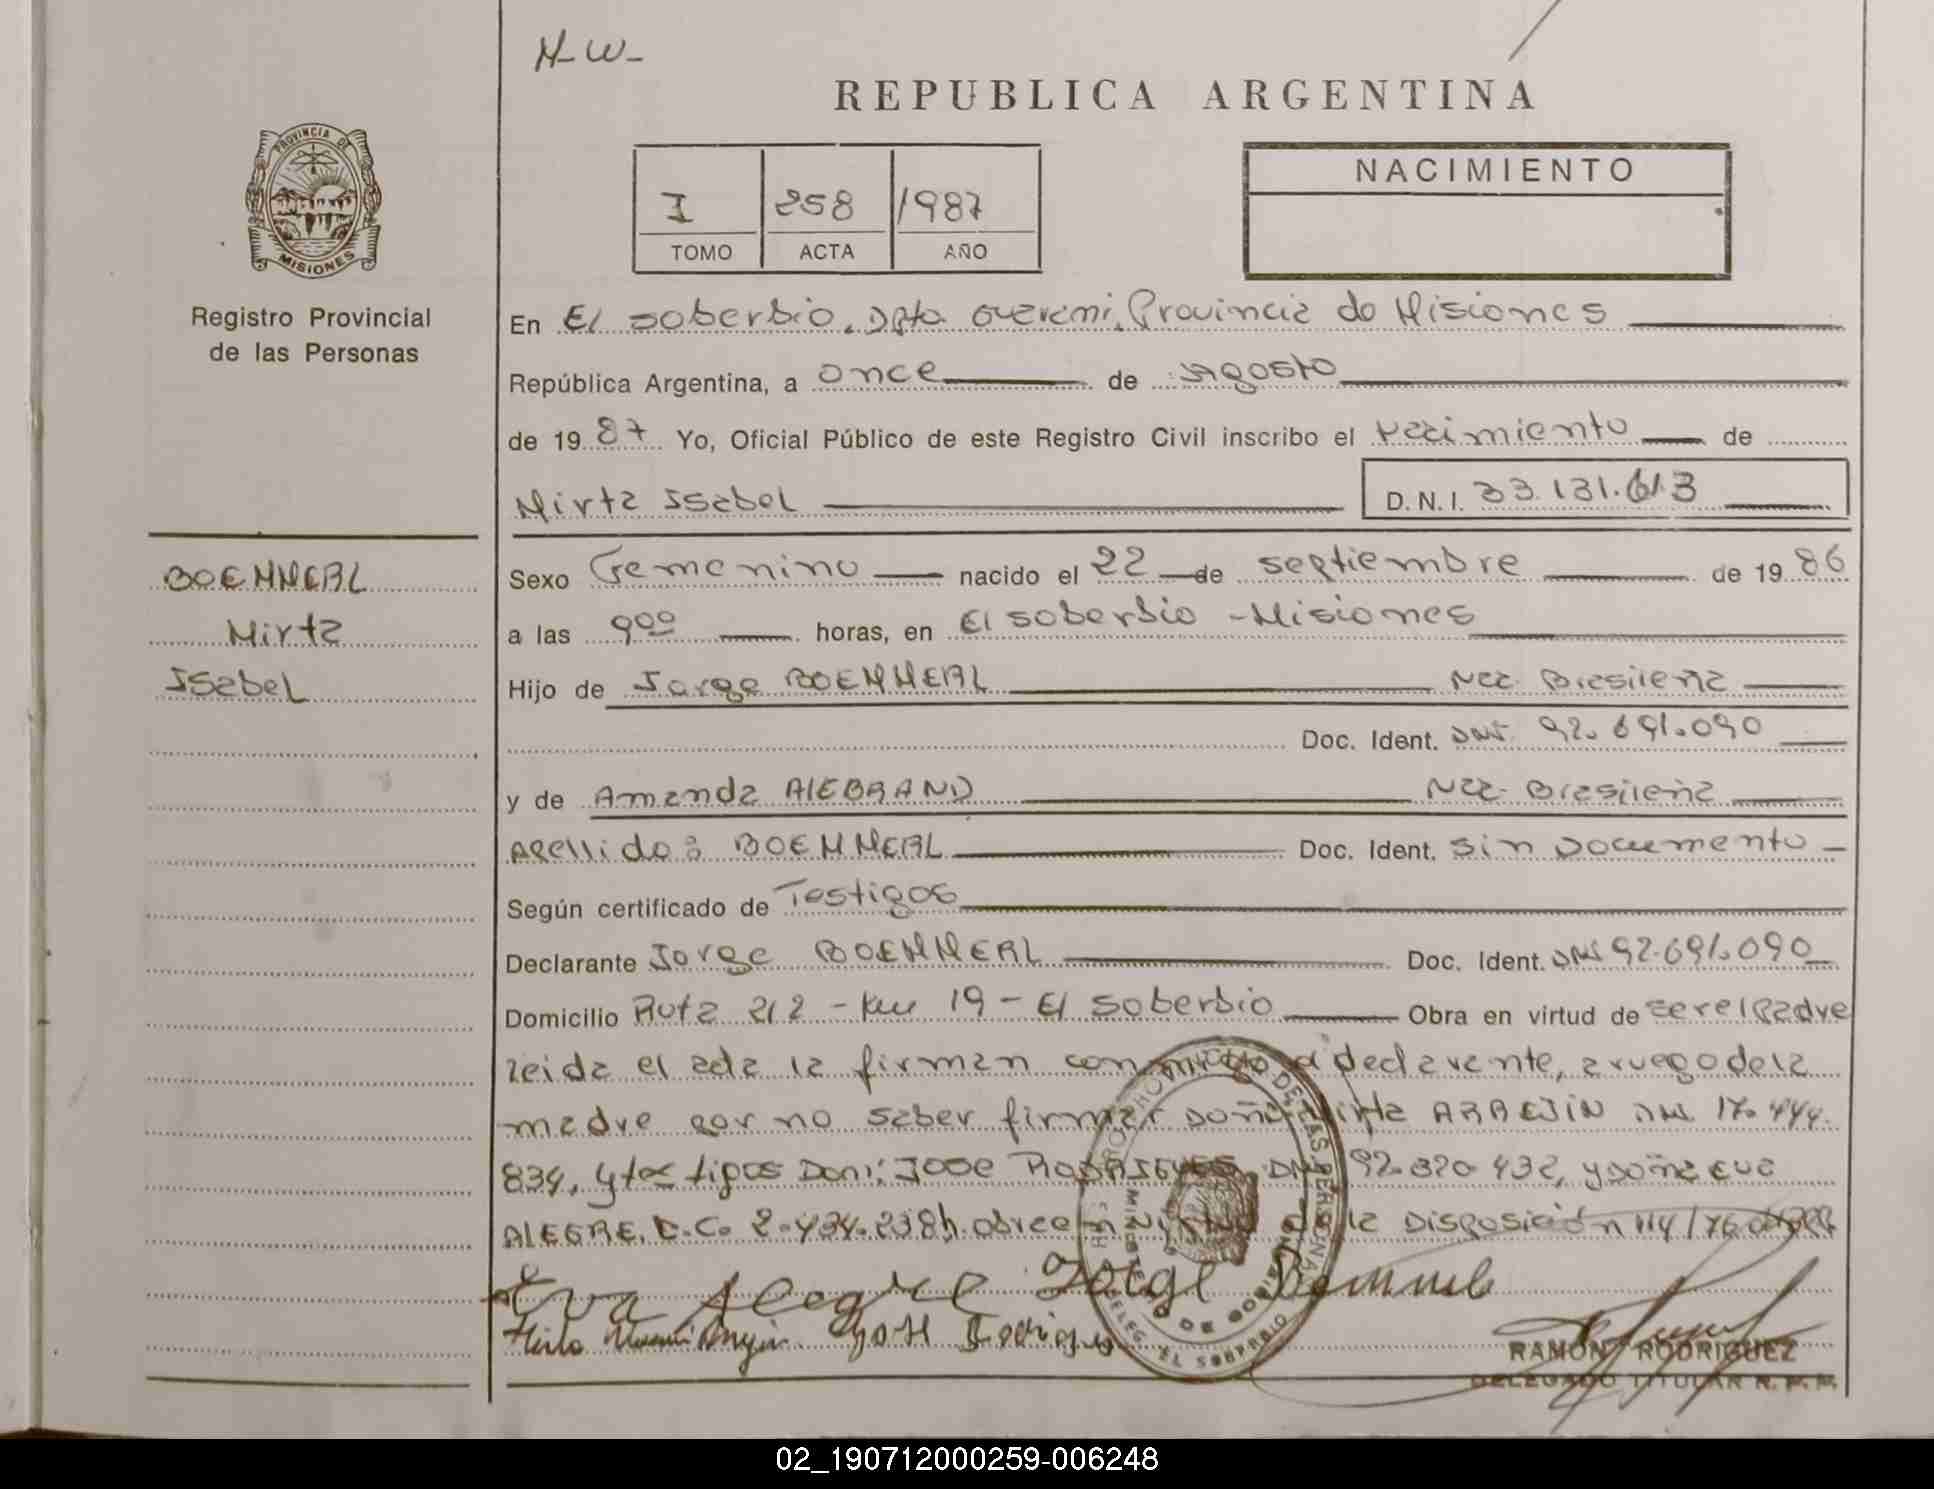 N-W-
REPUBLICA ARGENTINA
PROVINCIA DE
MISIONES
I 258 1987
TOMO ACTA AÑO
NACIMIENTO
Registro Provincial
de las Personas
En El soberbio, Dpto Guarani, Provincia de Misiones
República Argentina, a once de Agosto
de 1987 Yo, Oficial Público de este Registro Civil inscribo el nacimiento de
Mirta Isabel D.N.I. 33.131.613
BOEMMERL
Mirta
Isabel
Sexo Femenino nacido el 22 de septiembre de 1986
a las 9 00 horas, en El soberbio - Misiones
Hijo de Jorge BOEMMERL Nac. Brasilena
Doc. Ident. DNI 92.691.090
y de Amanda ALEBRAND Nac. Brasileña
Apellido: BOEMMERL Doc. Ident. sin Documento
Según certificado de Testigos
Declarante Jorge BOEMMERL Doc. Ident. DNI 92.691.090
Domicilio Ruta 212 - Km 19 - El soberbio Obra en virtud de ser el padre
leida el acta la firman conmigo el declarante, a ruego de la
madre por no saber firmar doña Mirta ARREJIN DNI 17.444.
834, y testigos Don: JOSE RODRIGUES DNI 92.320.432, y doña EVA
ALEGRE, L.C. 2.434.238, obra en virtud de la Disposición 114/76
Eva Alegre Jorge
José Rodrigues
EL SOBERBIO
RAMON RODRIGUEZ
DELEGADO TITULAR R. P. P.
02_190712000259-006248